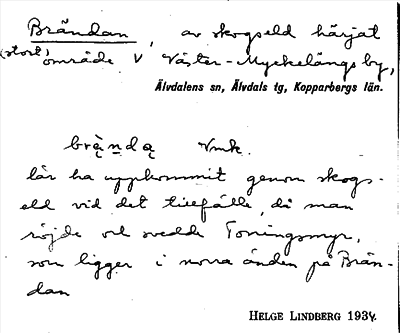 Brändan, av skogseld härjat
(stort) område V Väster-Myckelängs by,
Älvdalens sn, Älvdals tg, Kopparbergs län.
brą̈ndą Vmk.
lär ha uppkommit genom skogs-
eld vid det tillfälle, då man
röjde och svedde Torningsmyr,
som ligger i norra änden på Brän-
dan
HELGE LINDBERG 1934.